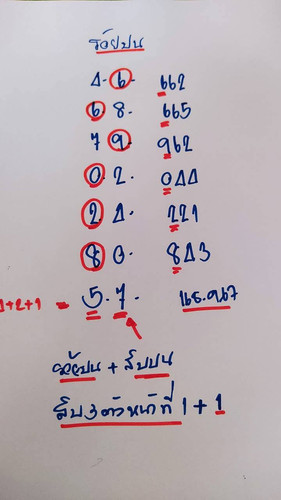 ร้อยบน
4. 6. 662
6 8. 665
7 9. 962
0. 2. 044
2. 4. 221
8 0. 843
1+2+1 = 5.7. 165.967
ร้อยบน + สิบบน
สิบ 3 ตัวหน้าที่ 1 + 1